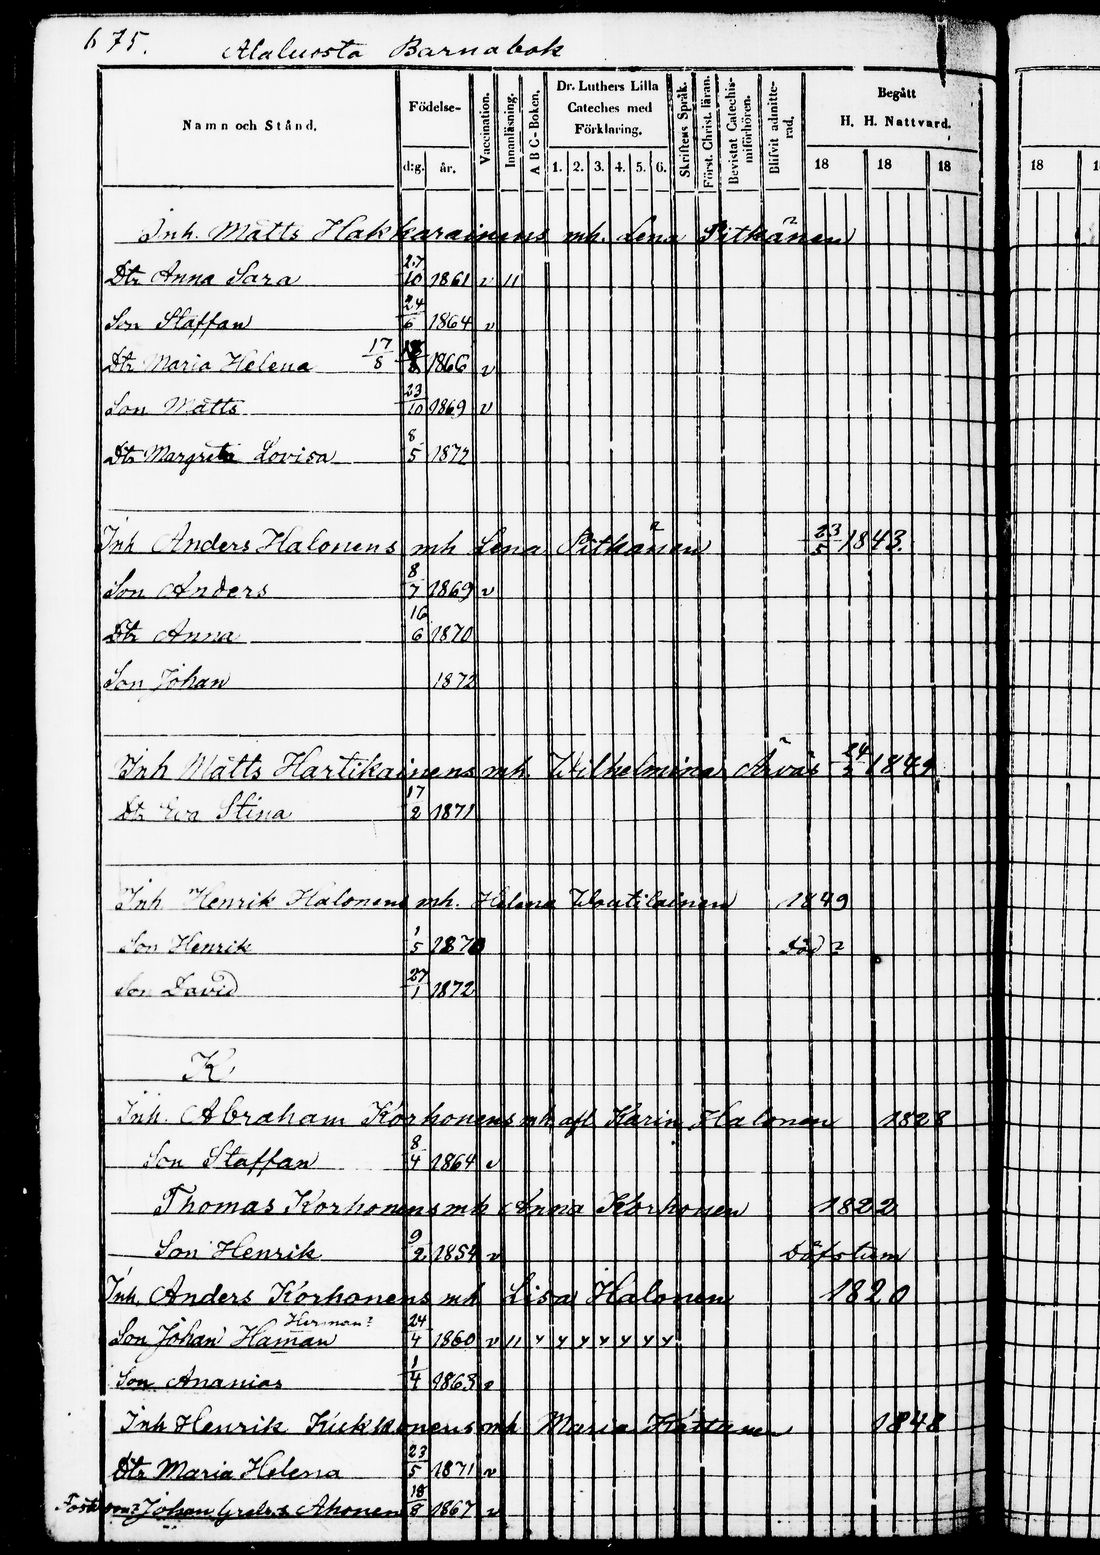 675. Alaluosta Barnabok
Namn och Stånd. Födelse- d:g. år. Vaccination. Innanläsning. A B C-Boken. Dr. Luthers Lilla Cateches med Förklaring. 1. 2. 3. 4. 5. 6. Skriftens Språk. Först. Christ. läran. Bevistat Catechismiförhören. Blifvit admitterad. Begått H. H. Nattvard. 18 18 18 18
Inh. Matts Hakkarainens mh. Lena Pitkänen
Dtr Anna Sara 27/10 1861 v 11
Son Staffan 24/6 1864 v
Dtr Maria Helena 17/8 18/8 1866 v
Son Matts 23/10 1869 v
Dtr Margreta Lovisa 8/5 1872
Inh Anders Halonens mh Lena Pitkänen 23/5 1843.
Son Anders 8/7 1869 v
Dtr Anna 16/6 1870
Son Johan 1872
Inh Matts Hartikainens mh. Wilhelmina Arvas 24/3 1849
Dtr Eva Stina 17/2 1871
Inh Henrik Halonens mh. Helena Woutilainen 1849
Son Henrik 1/5 1870 död?
Son David 27/1 1872
K
Inh. Abraham Korhonens mh afl Karin Halonen 1828
Son Staffan 8/4 1864 v
Thomas Korhonens mh Anna Korhonen 1822
Son Henrik 9/2 1854 v Döfstum
Inh. Anders Korhonens mh Lisa Halonen 1820
Herman?
Son Johan Haman 24/4 1860 v 11 y y y y y y y
Son Ananias 1/4 1863 v
Inh Henrik Kukkonens mh Maria Kattanen 1848
Dtr Maria Helena 23/5 1871 v
Johan Ahonen 18/8 1867 v